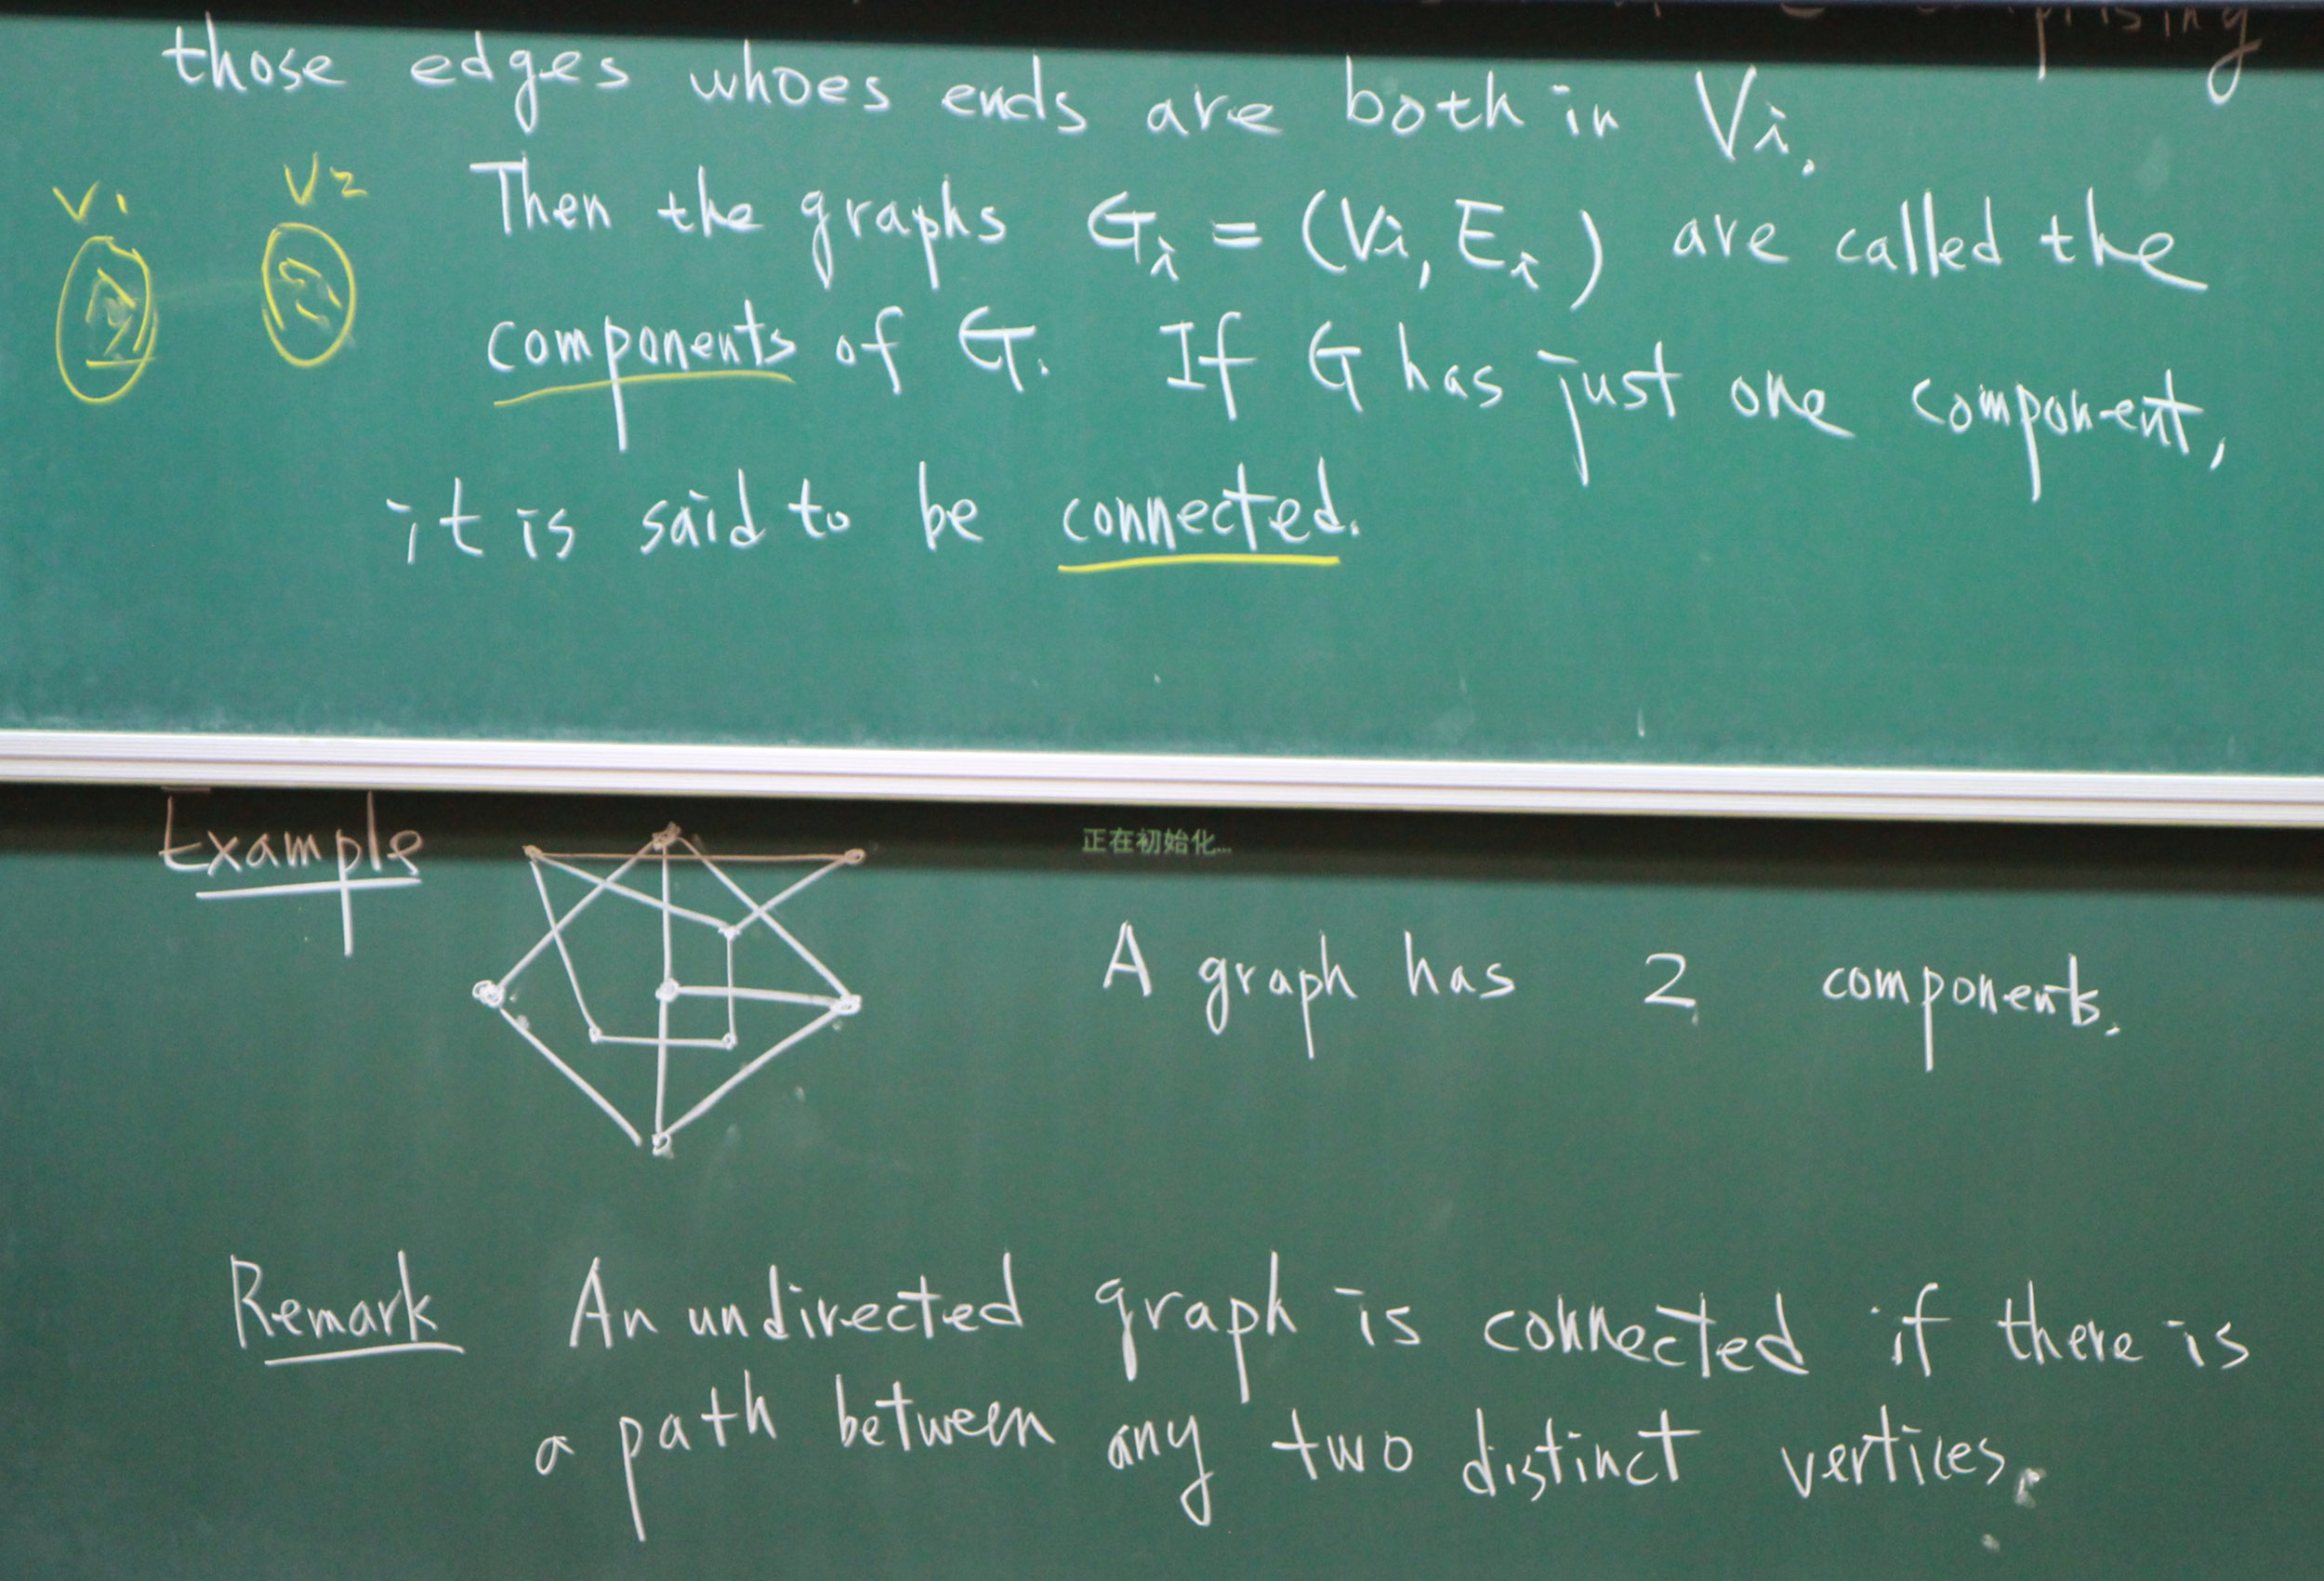 those edges whoes ends are both in Vi.
V1 V2
Then the graphs Gi = (Vi, Ei) are called the
components of G. If G has just one component,
it is said to be connected.
Example
正在初始化...
A graph has 2 components.
Remark An undirected graph is connected if there is
a path between any two distinct vertices.